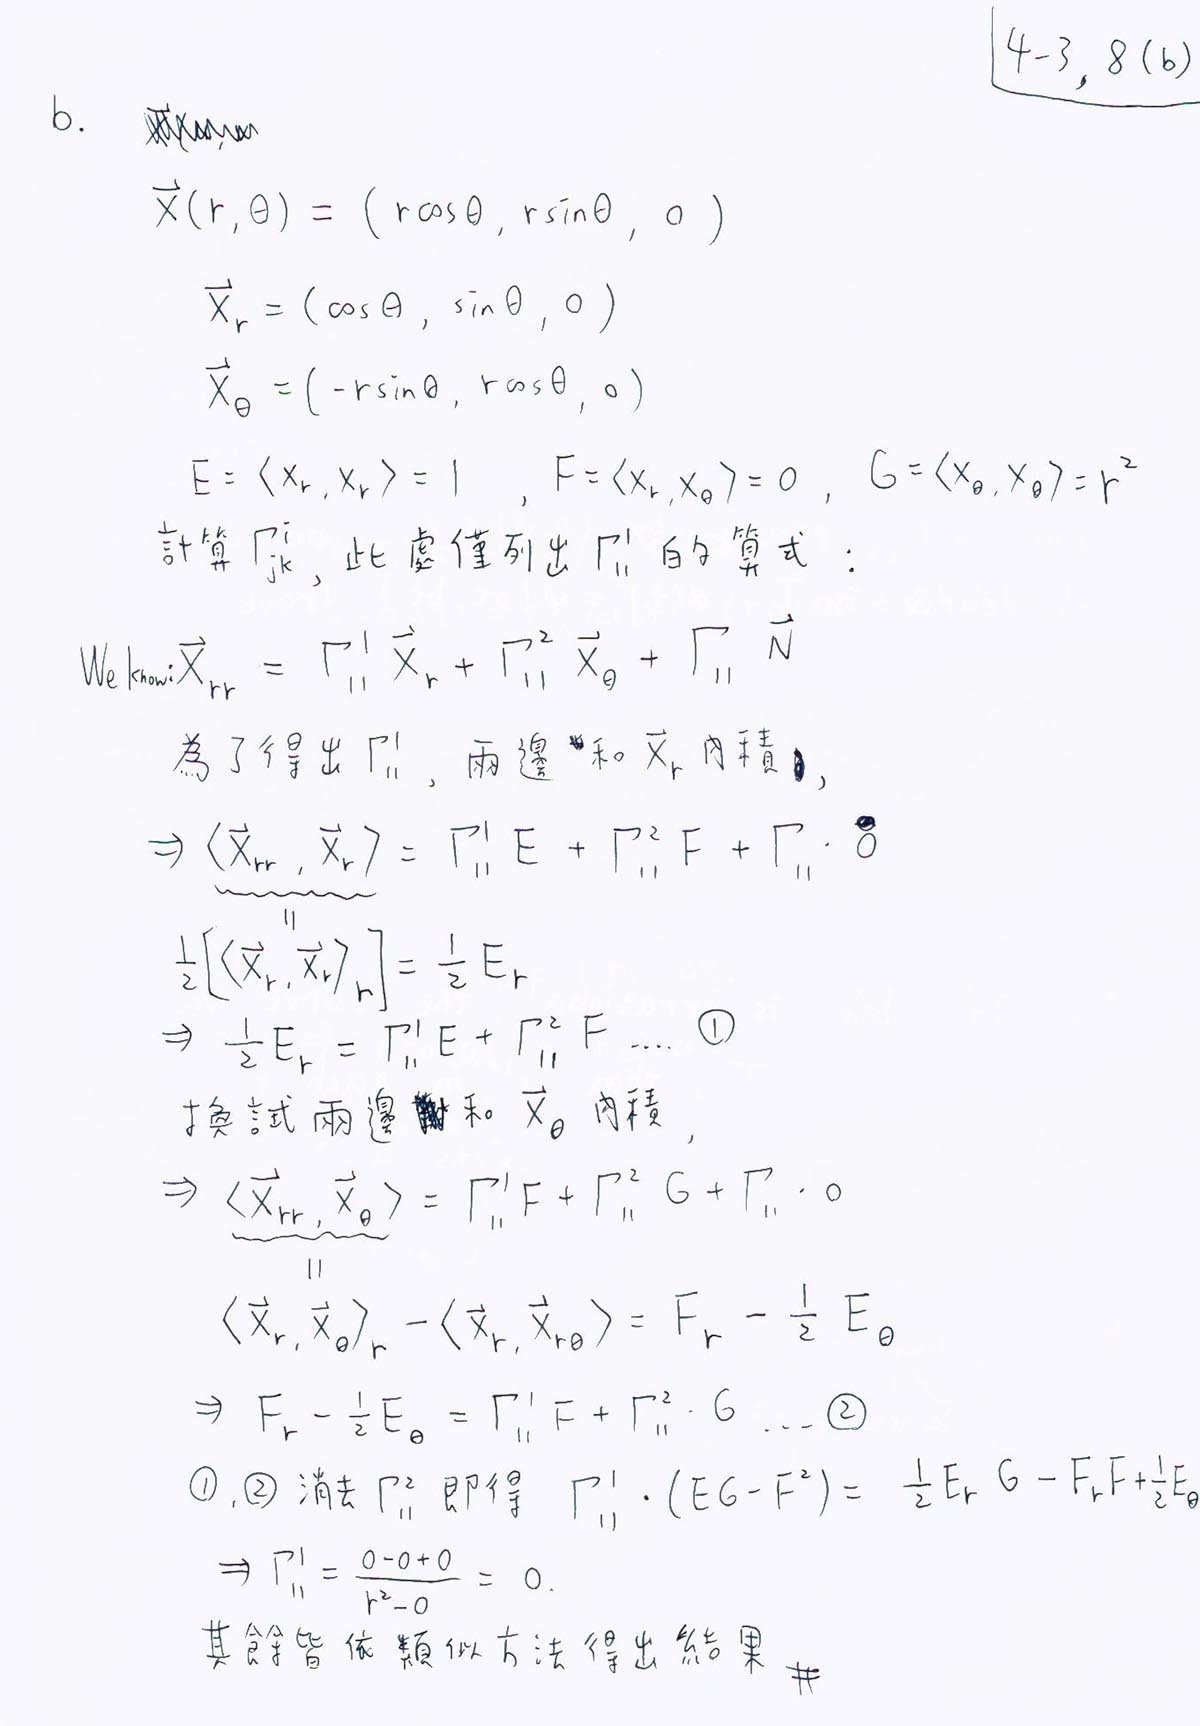 4-3, 8(b)
b.
X⃗(r,θ) = (r cosθ, r sinθ, 0)
X⃗_r = (cosθ, sinθ, 0)
X⃗_θ = (-r sinθ, r cosθ, 0)
E = ⟨X_r, X_r⟩ = 1, F = ⟨X_r, X_θ⟩ = 0, G = ⟨X_θ, X_θ⟩ = r²
計算 Γ^i_jk, 此處僅列出 Γ^1_11 的算式:
We know: X⃗_rr = Γ^1_11 X⃗_r + Γ^2_11 X⃗_θ + Γ_11 N⃗
為了得出 Γ^1_11, 兩邊和 X⃗_r 內積,
⇒ ⟨X⃗_rr, X⃗_r⟩ = Γ^1_11 E + Γ^2_11 F + Γ_11 · 0
=
1/2 [⟨X⃗_r, X⃗_r⟩_r] = 1/2 E_r
⇒ 1/2 E_r = Γ^1_11 E + Γ^2_11 F .... ①
換試兩邊和 X⃗_θ 內積,
⇒ ⟨X⃗_rr, X⃗_θ⟩ = Γ^1_11 F + Γ^2_11 G + Γ_11 · 0
=
⟨X⃗_r, X⃗_θ⟩_r - ⟨X⃗_r, X⃗_rθ⟩ = F_r - 1/2 E_θ
⇒ F_r - 1/2 E_θ = Γ^1_11 F + Γ^2_11 · G .... ②
①, ② 消去 Γ^2_11 即得 Γ^1_11 · (EG - F²) = 1/2 E_r G - F_r F + 1/2 E_θ
⇒ Γ^1_11 = (0-0+0)/(r²-0) = 0.
其餘皆依類似方法得出結果 #